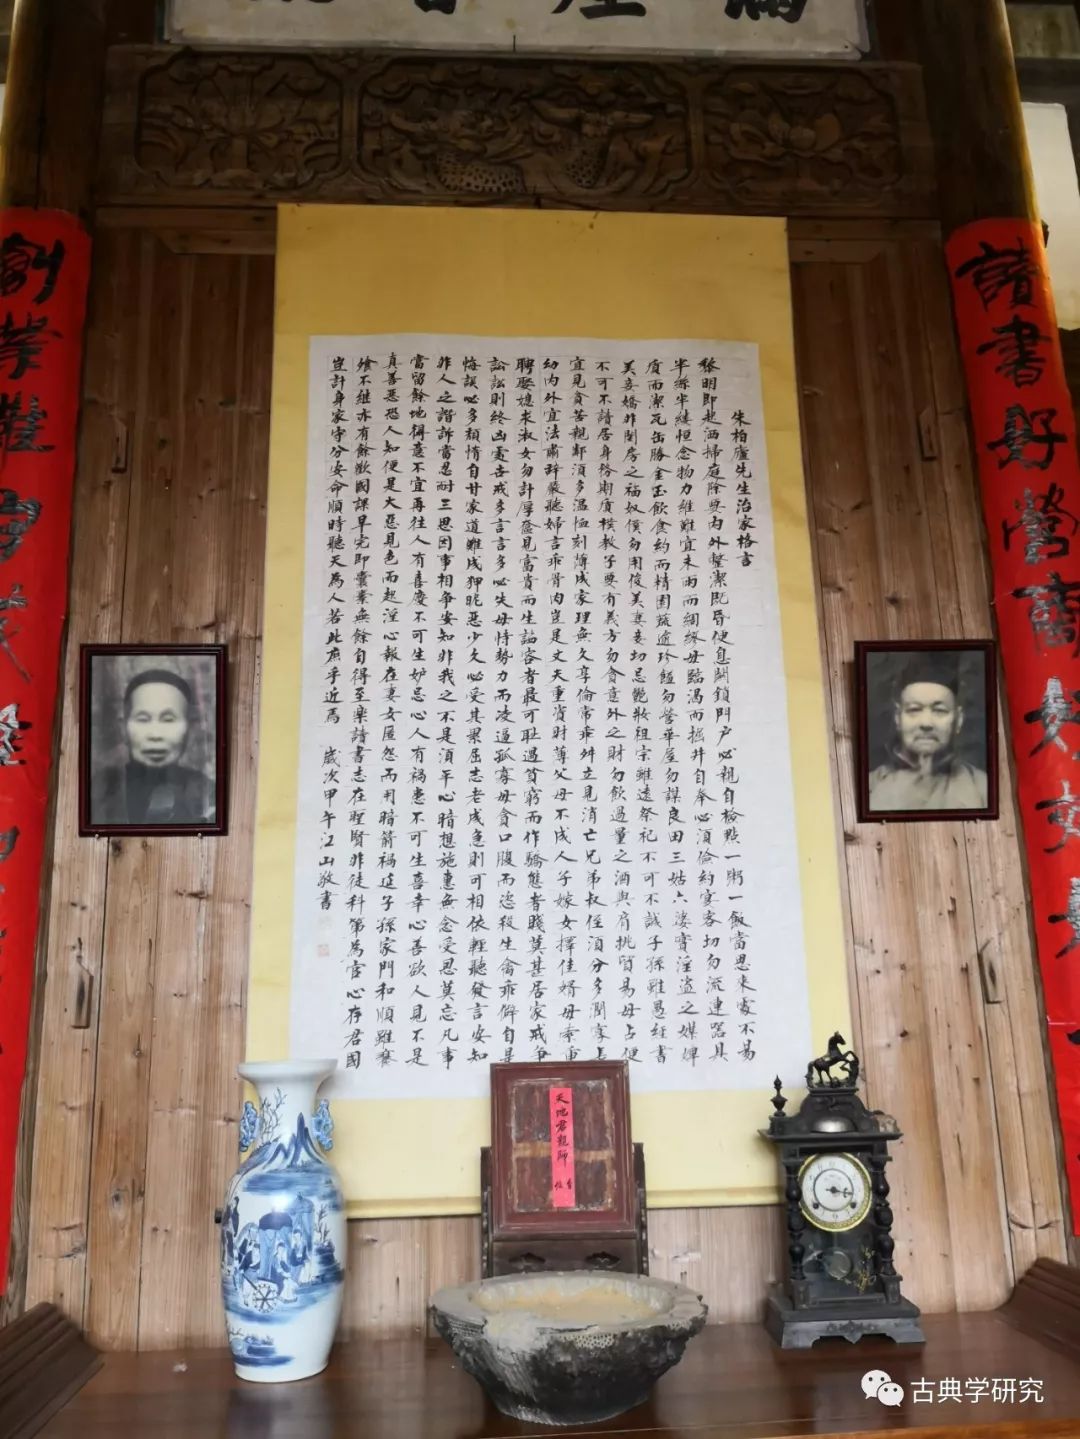 讀書好營商好
創業難守
朱柏廬先生治家格言
黎明即起洒掃庭除要內外整潔既昏便息關鎖門戶必親自檢點一粥一飯當思來處不易
半絲半縷恒念物力維難宜未雨而綢繆毋臨渴而掘井自奉必須儉約宴客切勿流連器具
質而潔瓦缶勝金玉飲食約而精園蔬逾珍饈勿營華屋勿謀良田三姑六婆實淫盜之媒婢
美妾嬌非閨房之福奴僕勿用俊美妻妾切忌艷妝祖宗雖遠祭祀不可不誠子孫雖愚經書
不可不讀居身務期質樸教子要有義方勿貪意外之財勿飲過量之酒與肩挑貿易毋占便
宜見貧苦親鄰須多溫恤刻薄成家理無久享倫常乖舛立見消亡兄弟叔侄須分多潤寡長
幼內外宜法肅辭嚴聽婦言乖骨肉豈是丈夫重資財薄父母不成人子嫁女擇佳婿毋索重
聘娶媳求淑女勿計厚奩見富貴而生諂容者最可恥遇貧窮而作驕態者賤莫甚居家戒爭
訟訟則終凶處世戒多言言多必失毋恃勢力而凌逼孤寡毋貪口腹而恣殺生禽乖僻自是
悔誤必多頹惰自甘家道難成狎昵惡少久必受其累屈志老成急則可相依輕聽發言安知
非人之譖訴當忍耐三思因事相爭安知非我之不是須平心暗想施惠無念受恩莫忘凡事
當留餘地得意不宜再往人有喜慶不可生妒忌心人有禍患不可生喜幸心善欲人見不是
真善惡恐人知便是大惡見色而起淫心報在妻女匿怨而用暗箭禍延子孫家門和順雖饔
飧不繼亦有餘歡國課早完即囊橐無餘自得至樂讀書志在聖賢非徒科第為官心存君國
豈計身家守分安命順時聽天為人若此庶乎近焉 歲次甲午江山敬書
天地君親師
古典学研究